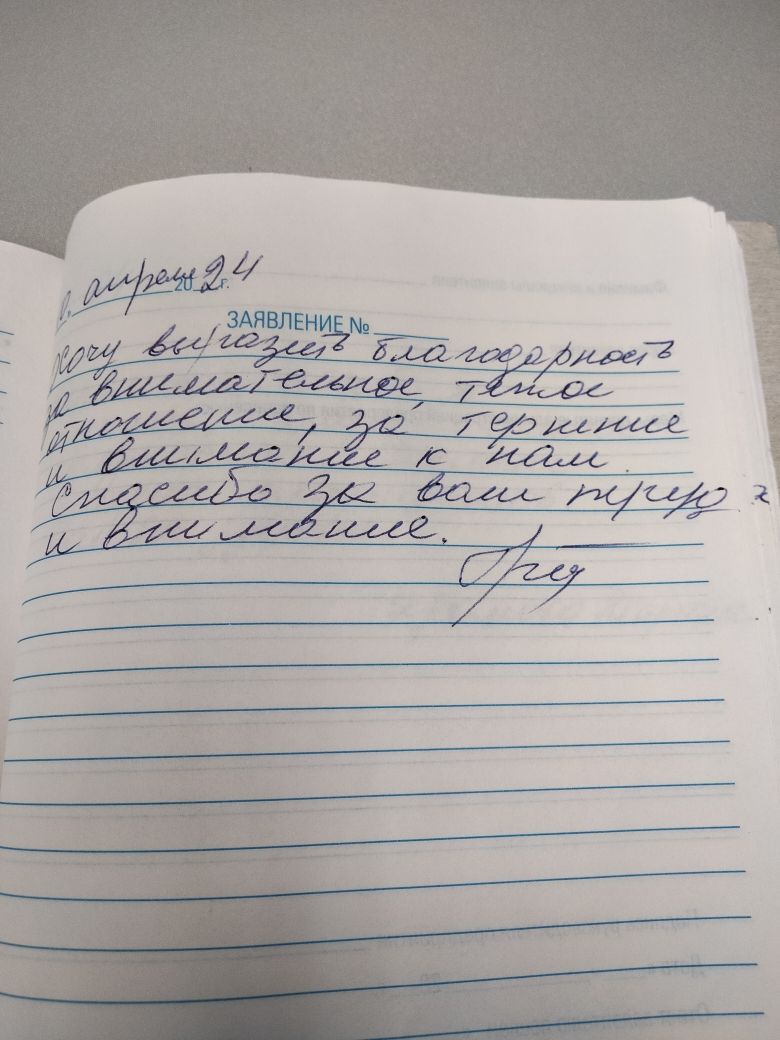 апреля 2024 г.
ЗАЯВЛЕНИЕ №
Хочу выразить благодарность
за внимательное, теплое
отношение, за терпение
и внимание к нам.
Спасибо за ваш труд
и внимание.